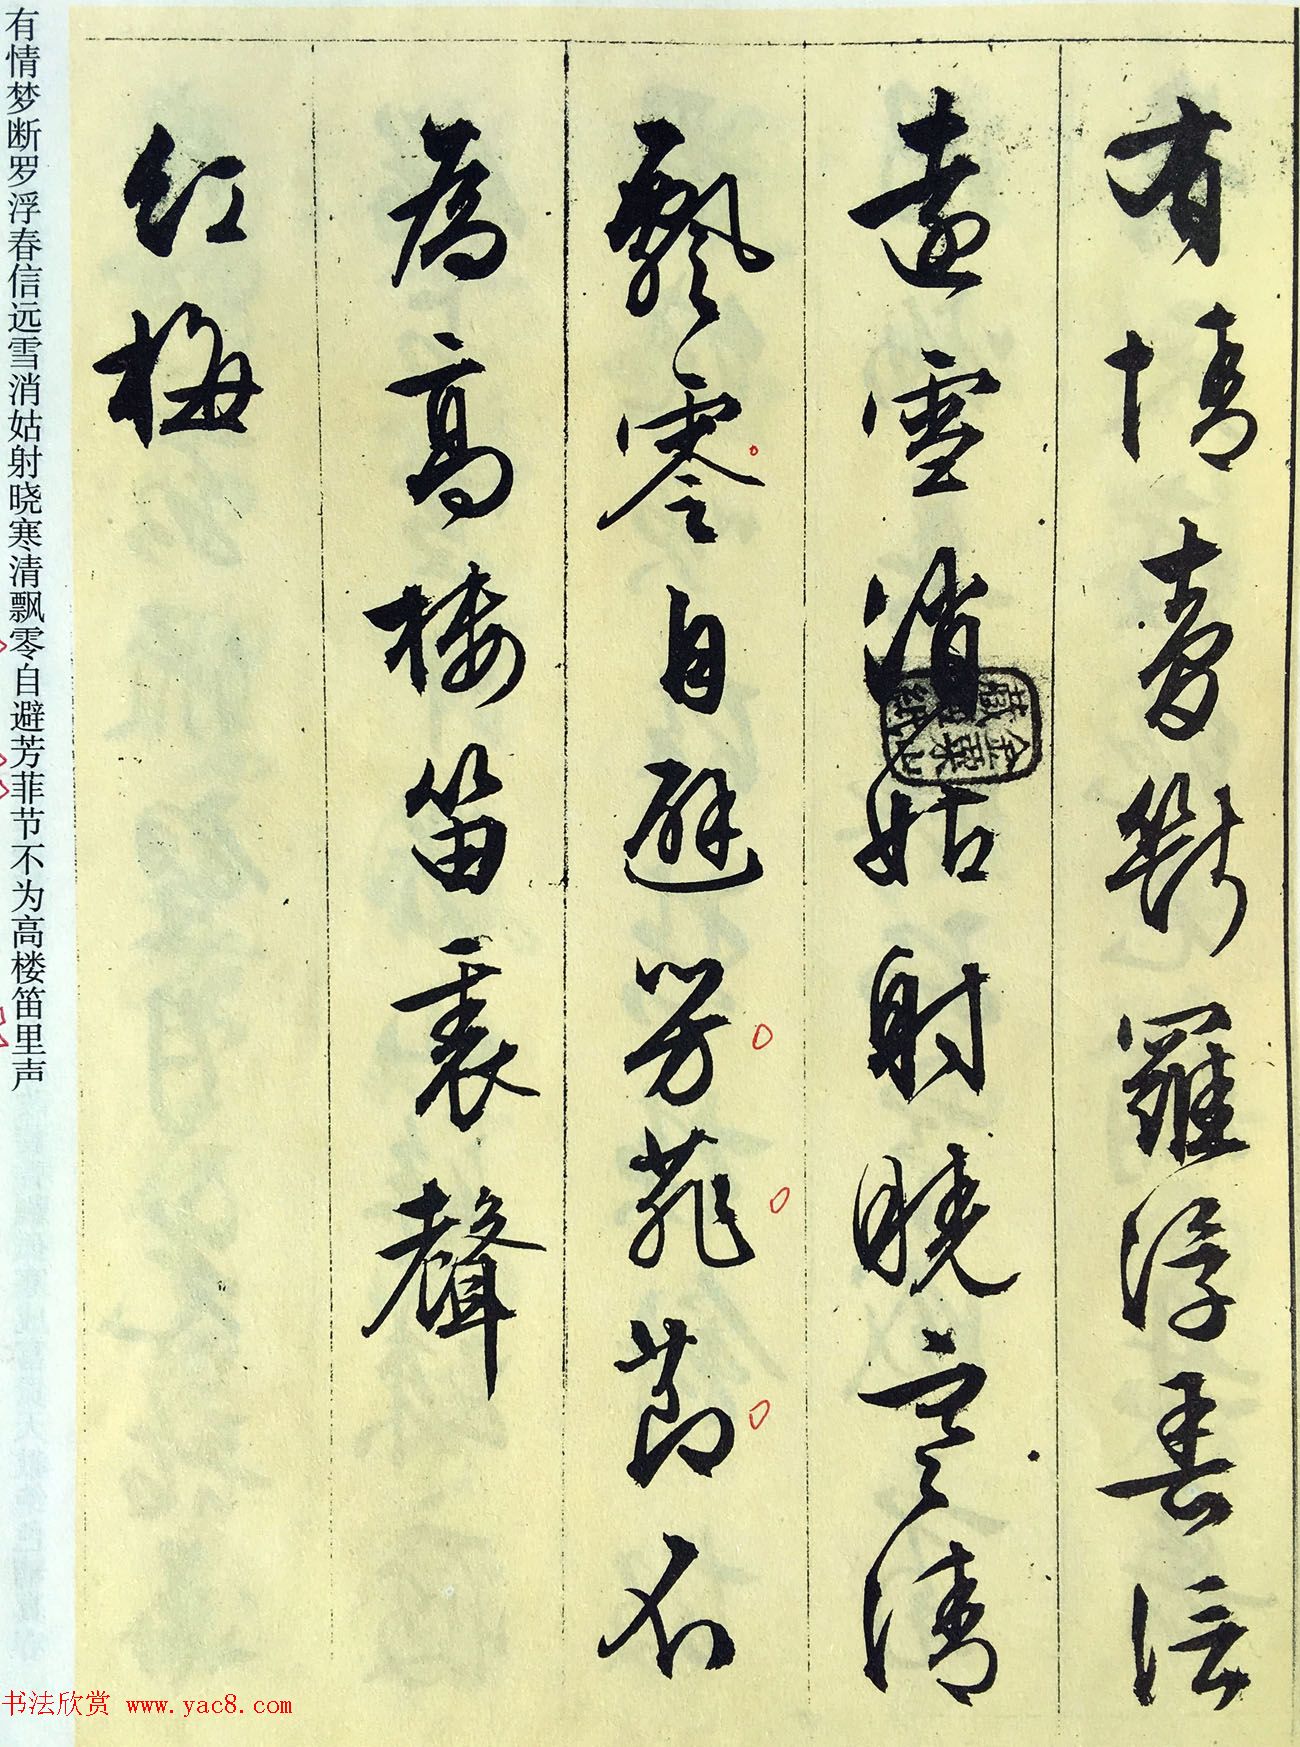 有情夢斷羅浮春信
遠雪消姑射曉寒清
飄零自避芳菲節不
為高樓笛裏聲
紅梅
有情梦断罗浮春信远雪消姑射晓寒清飘零自避芳菲节不为高楼笛里声
书法欣赏 www.yac8.com